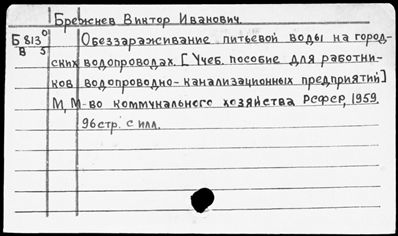 Брежнев Виктор Иванович.
Б 813 0 Обеззараживание питьевой воды на город-
В 5
ских водопроводах. [Учеб. пособие для работни-
ков водопроводно-канализационных предприятий]
М, М-во коммунального хозяйства РСФСР, 1959.
96 стр. с илл.